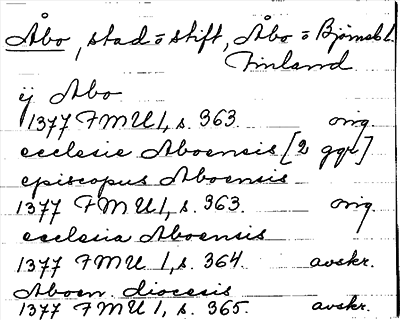 Åbo, stad o stift, Åbo o Björneb. l.
Finland
ij Abo
1377 FMU 1, s. 363. orig.
ecclesie Aboensis [2 ggr]
episcopus Aboensis
1377 FMU 1, s. 363. orig.
ecclesia Aboensis
1377 FMU 1, s. 364. avskr.
Aboen. diocesis
1377 FMU 1, s. 365. avskr.